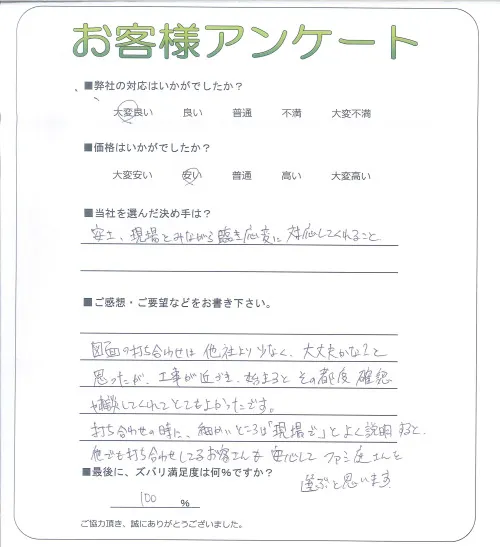 お客様アンケート
■弊社の対応はいかがでしたか?
大変良い 良い 普通 不満 大変不満
■価格はいかがでしたか?
大変安い 安い 普通 高い 大変高い
■当社を選んだ決め手は?
現場をみながら臨き応変に対応してくれること
■ご感想・ご要望などをお書き下さい。
図面の打ち合わせは他社より少なく、大丈夫かな?と
思ったが、工事が近づき、始まるとその都度確認
相談してくれてとてもよかったです。
打ち合わせの時に、細かいところは「現場で」とよく説明すると、
他でも打ち合わせしてるお客さんも安心してファミ庭さんを
選ぶと思います。
■最後に、ズバリ満足度は何%ですか?
100 %
ご協力頂き、誠にありがとうございました。